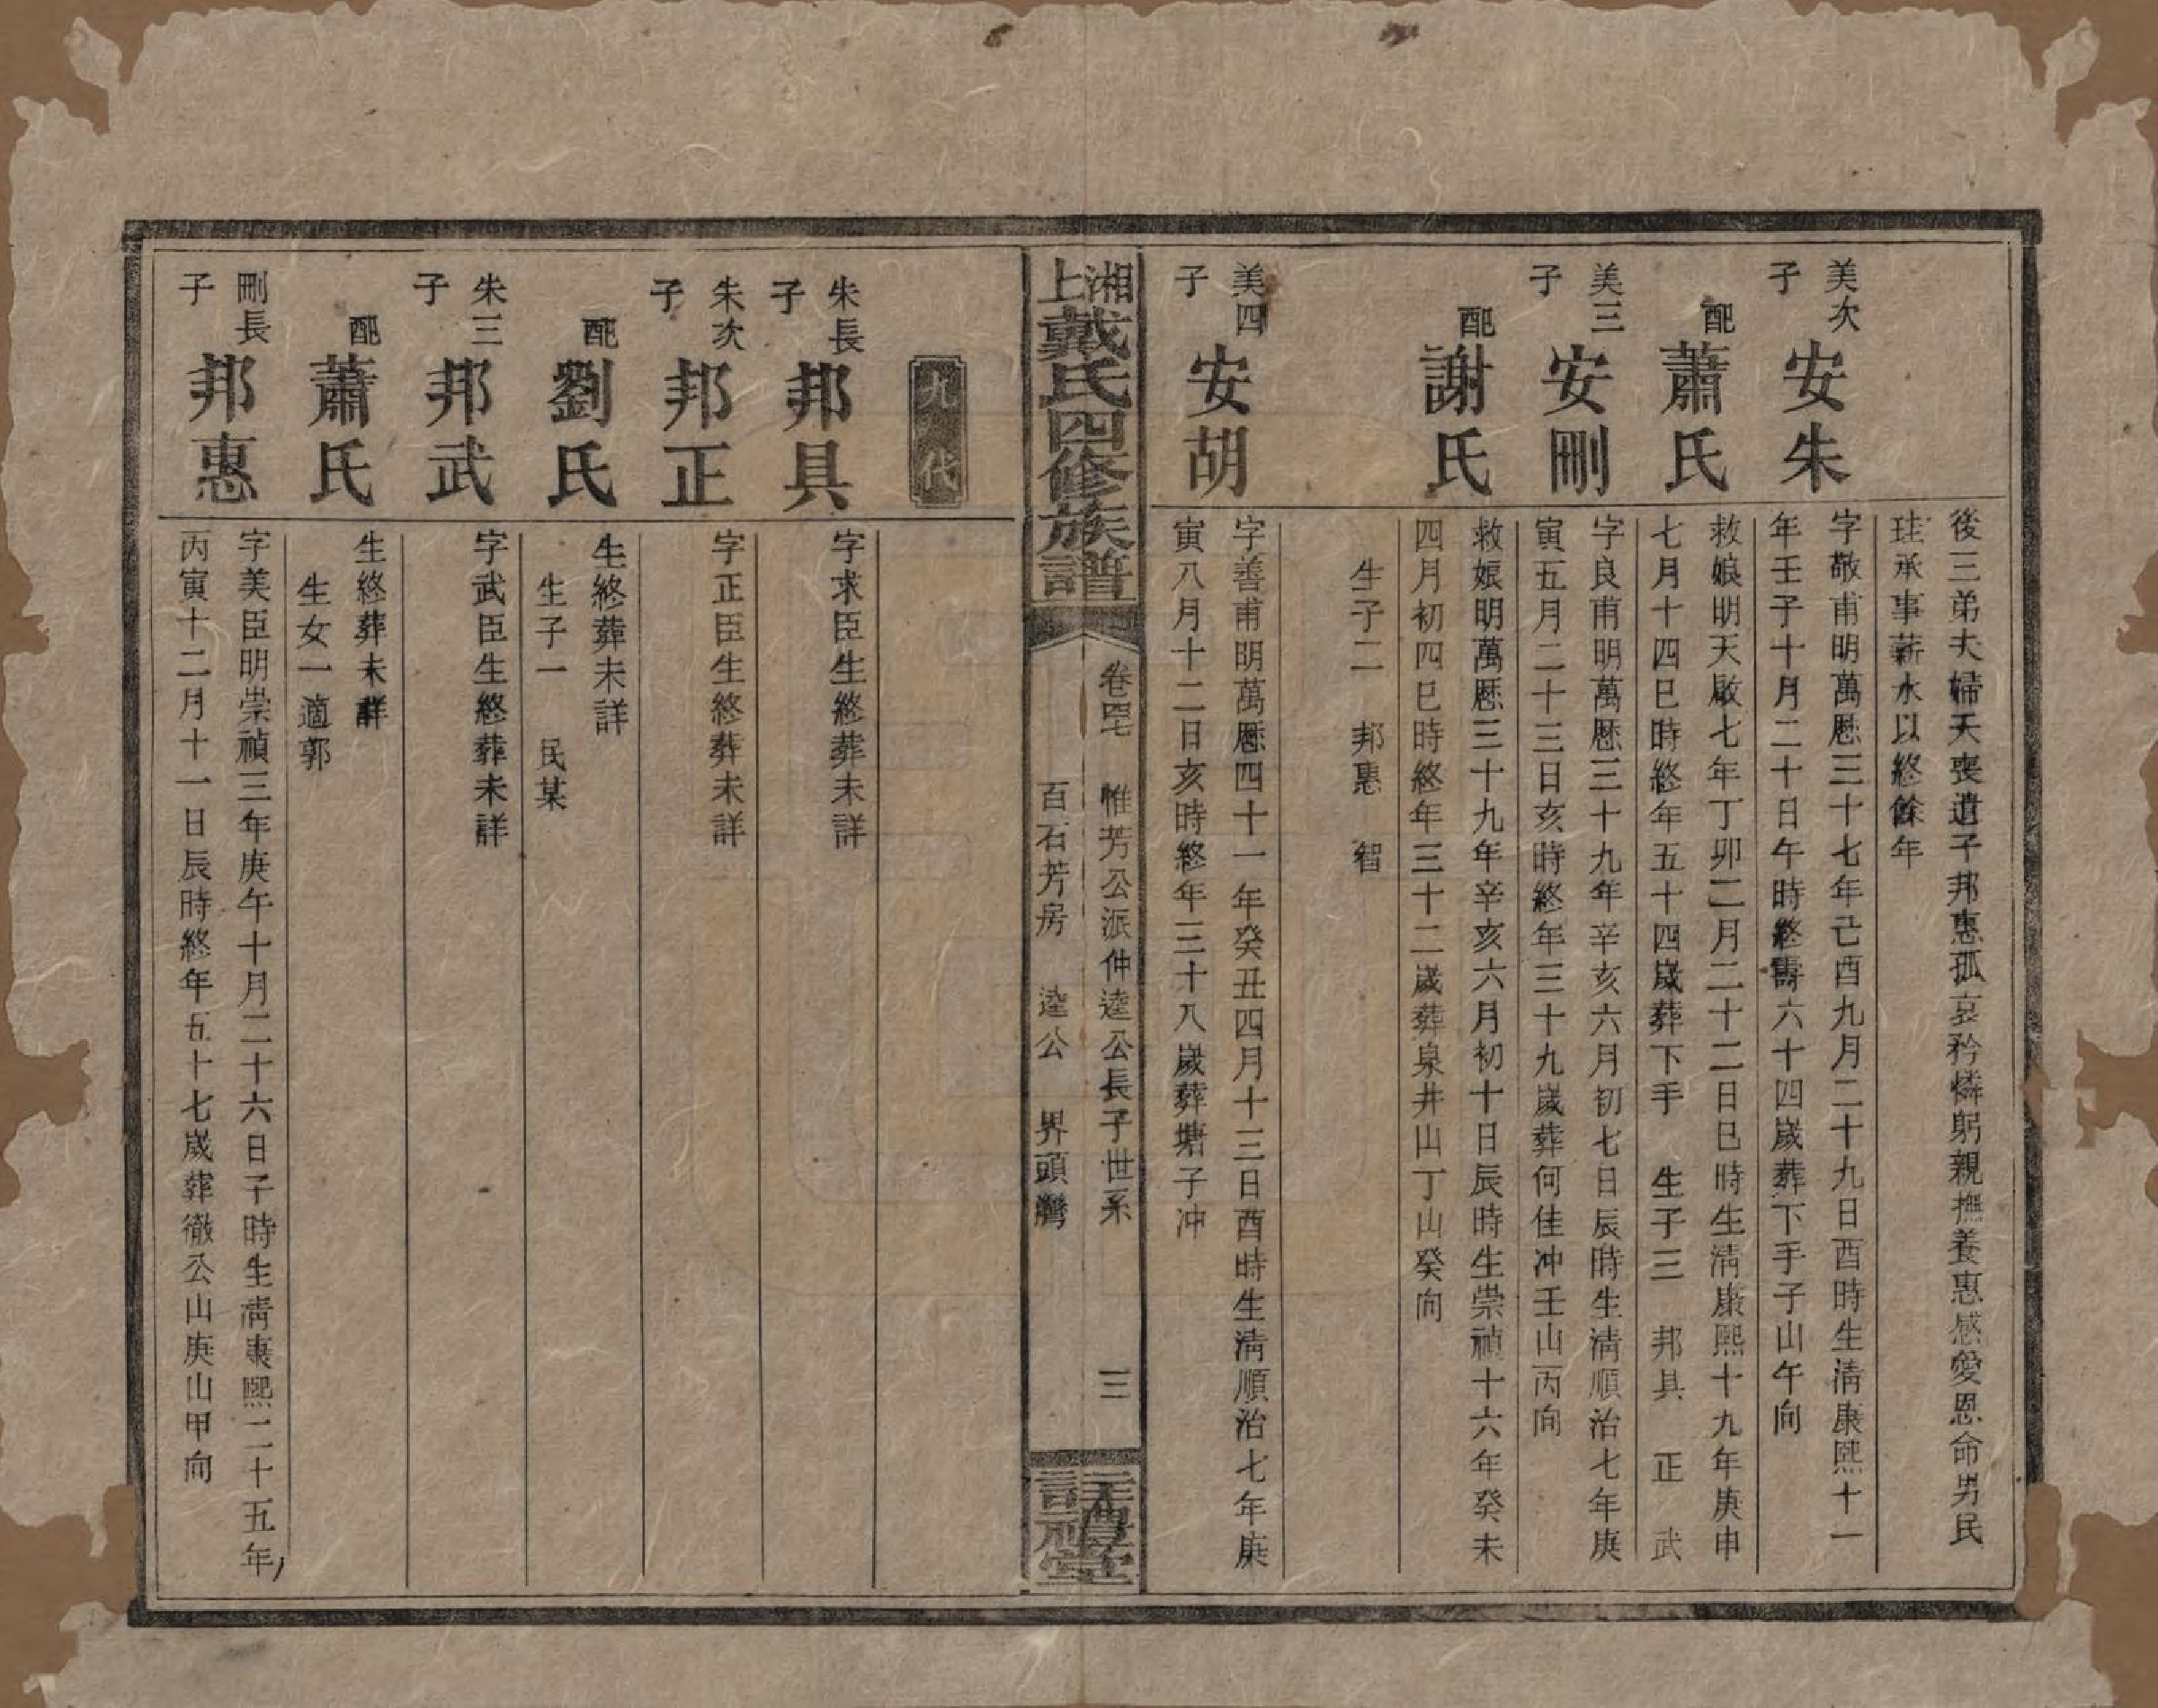 後三弟夫婦夭喪遺子邦惠孤哀矜憐躬親撫養惠感愛恩命男民
珪承事薪水以終餘年
美次子
安朱
字敬甫明萬歷三十七年己酉九月二十九日酉時生清康熙十一
年壬子十月二十日午時終壽六十四歲葬下手子山午向
配
蕭氏
救娘明天啟七年丁卯二月二十二日巳時生清康熙十九年庚申
七月十四巳時終年五十四歲葬下手 生子三 邦具 正 武
美三子
安剛
字良甫明萬歷三十九年辛亥六月初七日辰時生清順治七年庚
寅五月二十三日亥時終年三十九歲葬何佳冲壬山丙向
配
謝氏
救娘明萬歷三十九年辛亥六月初十日辰時生崇禎十六年癸未
四月初四巳時終年三十二歲葬泉井山丁山癸向
生子二 邦惠 智
美四子
安胡
字善甫明萬歷四十一年癸丑四月十三日酉時生清順治七年庚
寅八月十二日亥時終年三十八歲葬塘子冲
湘上戴氏四修族譜
卷四七 惟芳公派仲逵公長子世系 三
百石芳房 逵公 界頭灣
註禮堂
九代
朱長子
邦具
字求臣生終葬未詳
朱次子
邦正
字正臣生終葬未詳
配
劉氏
生終葬未詳
生子一 民某
朱三子
邦武
字武臣生終葬未詳
配
蕭氏
生終葬未詳
生女一適郭
剛長子
邦惠
字美臣明崇禎三年庚午十月二十六日子時生清康熙二十五年
丙寅十二月十一日辰時終年五十七歲葬徹公山庚山甲向